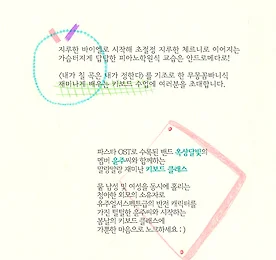 지루한 바이엘로 시작해 초절정 지루한 체르니로 이어지는
가슴터지게 답답한 피아노학원식 교습은 안드로메다로!
《내가 칠 곡은 내가 정한다》를 기조로 한 무궁꿈빠니식
재미나게 배우는 키보드 수업에 여러분을 초대합니다.
파스타 OST로 수록된 밴드 옥상달빛의
멤버 윤주씨와 함께하는
말랑말랑 재미난 키보드 클래스
뭇 남성 및 여성을 동시에 홀리는
청아한 외모의 소유자로
유주얼서스펙트급의 반전 캐릭터를
가진 털털한 윤주씨와 시작하는
봄날의 키보드 클래스에
가뿐한 마음으로 노크하세요 : )